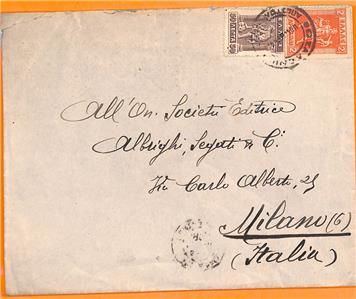 ΕΛΛΑΣ
2
All'On. Società Editrice
Albrighi, Segati & C.
Via Carlo Alberto, 25
Milano (6)
(Italia)